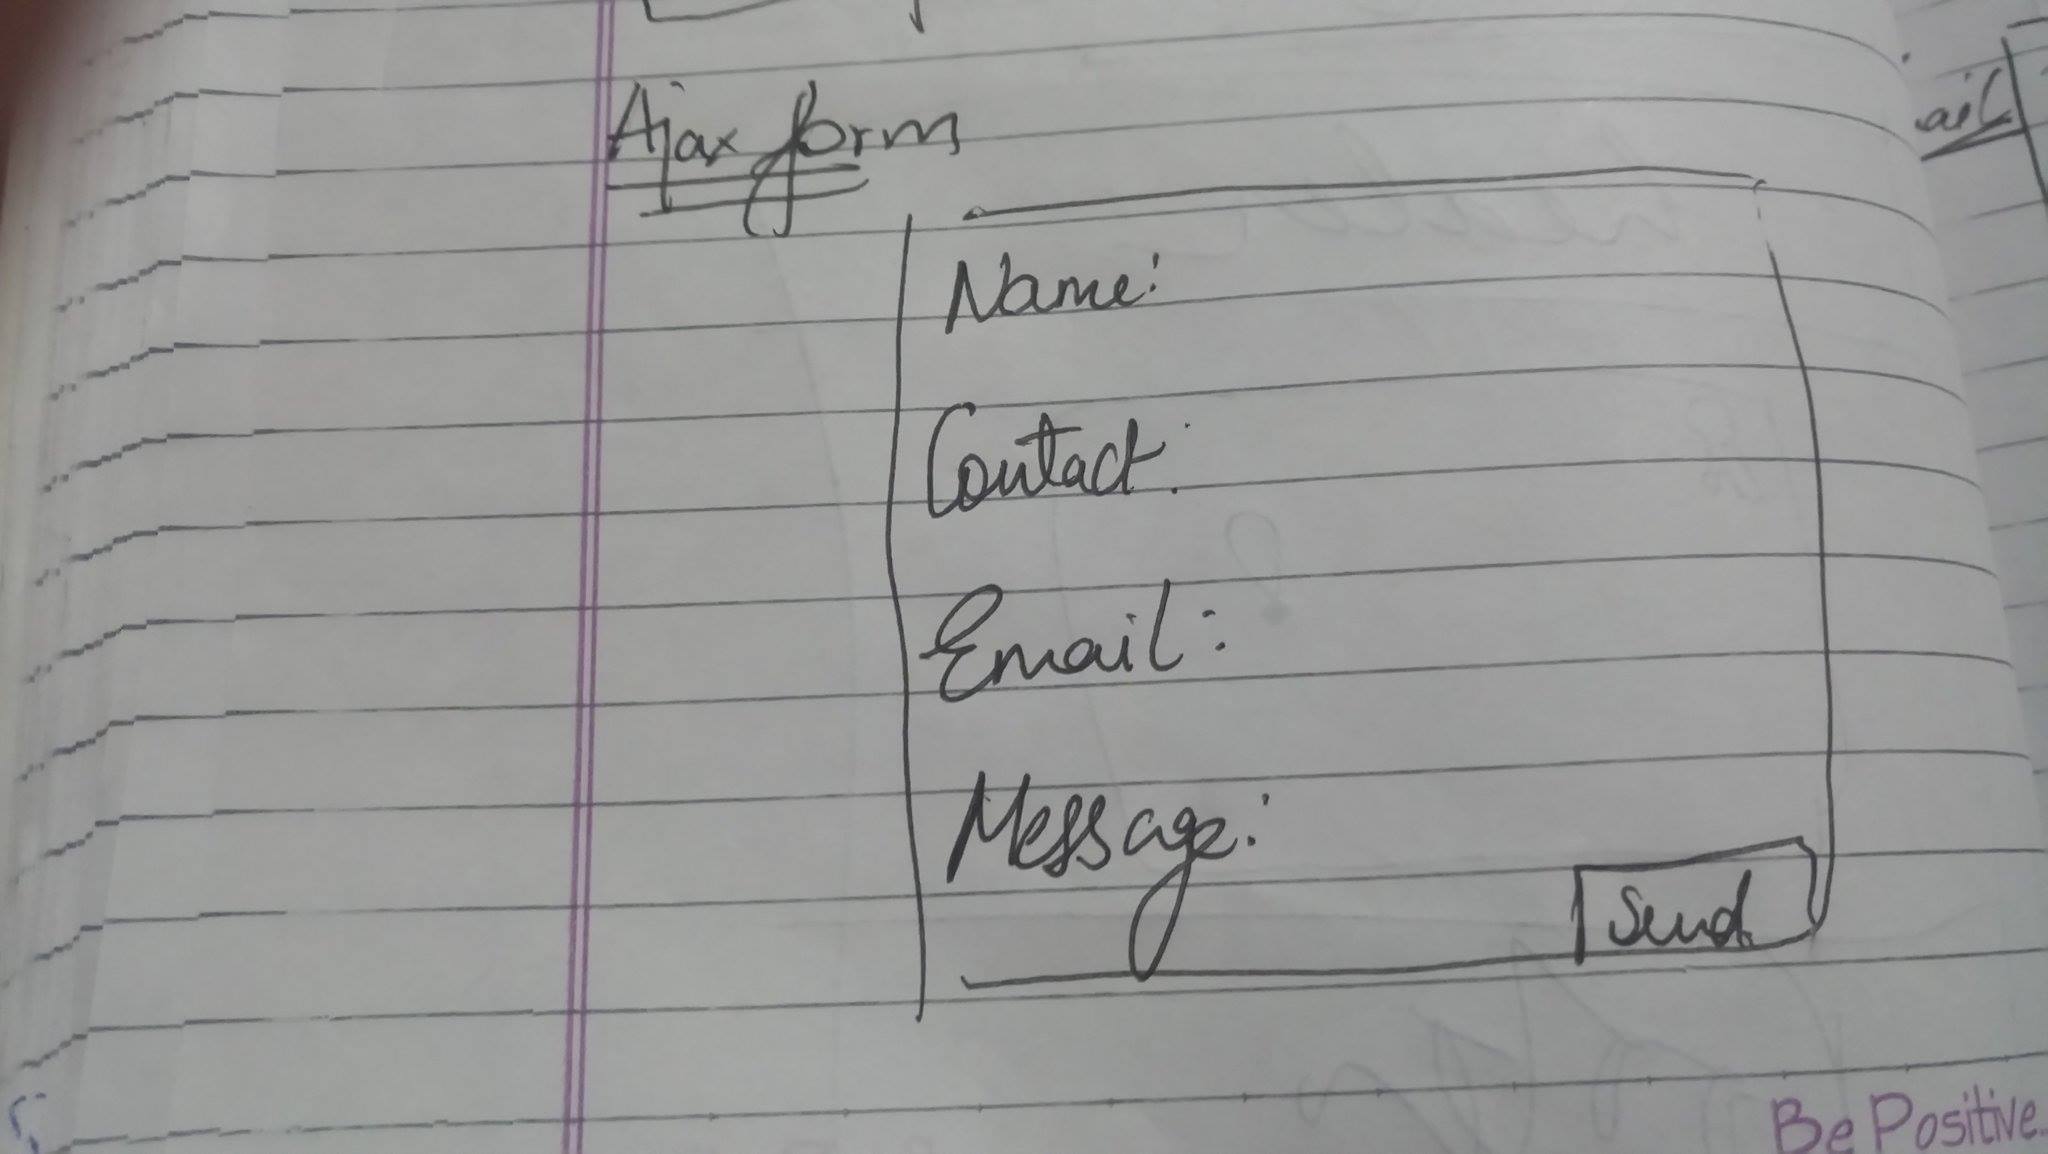 Ajax form
Name:
Contact:
Email:
Message:
Send
Be Positive.